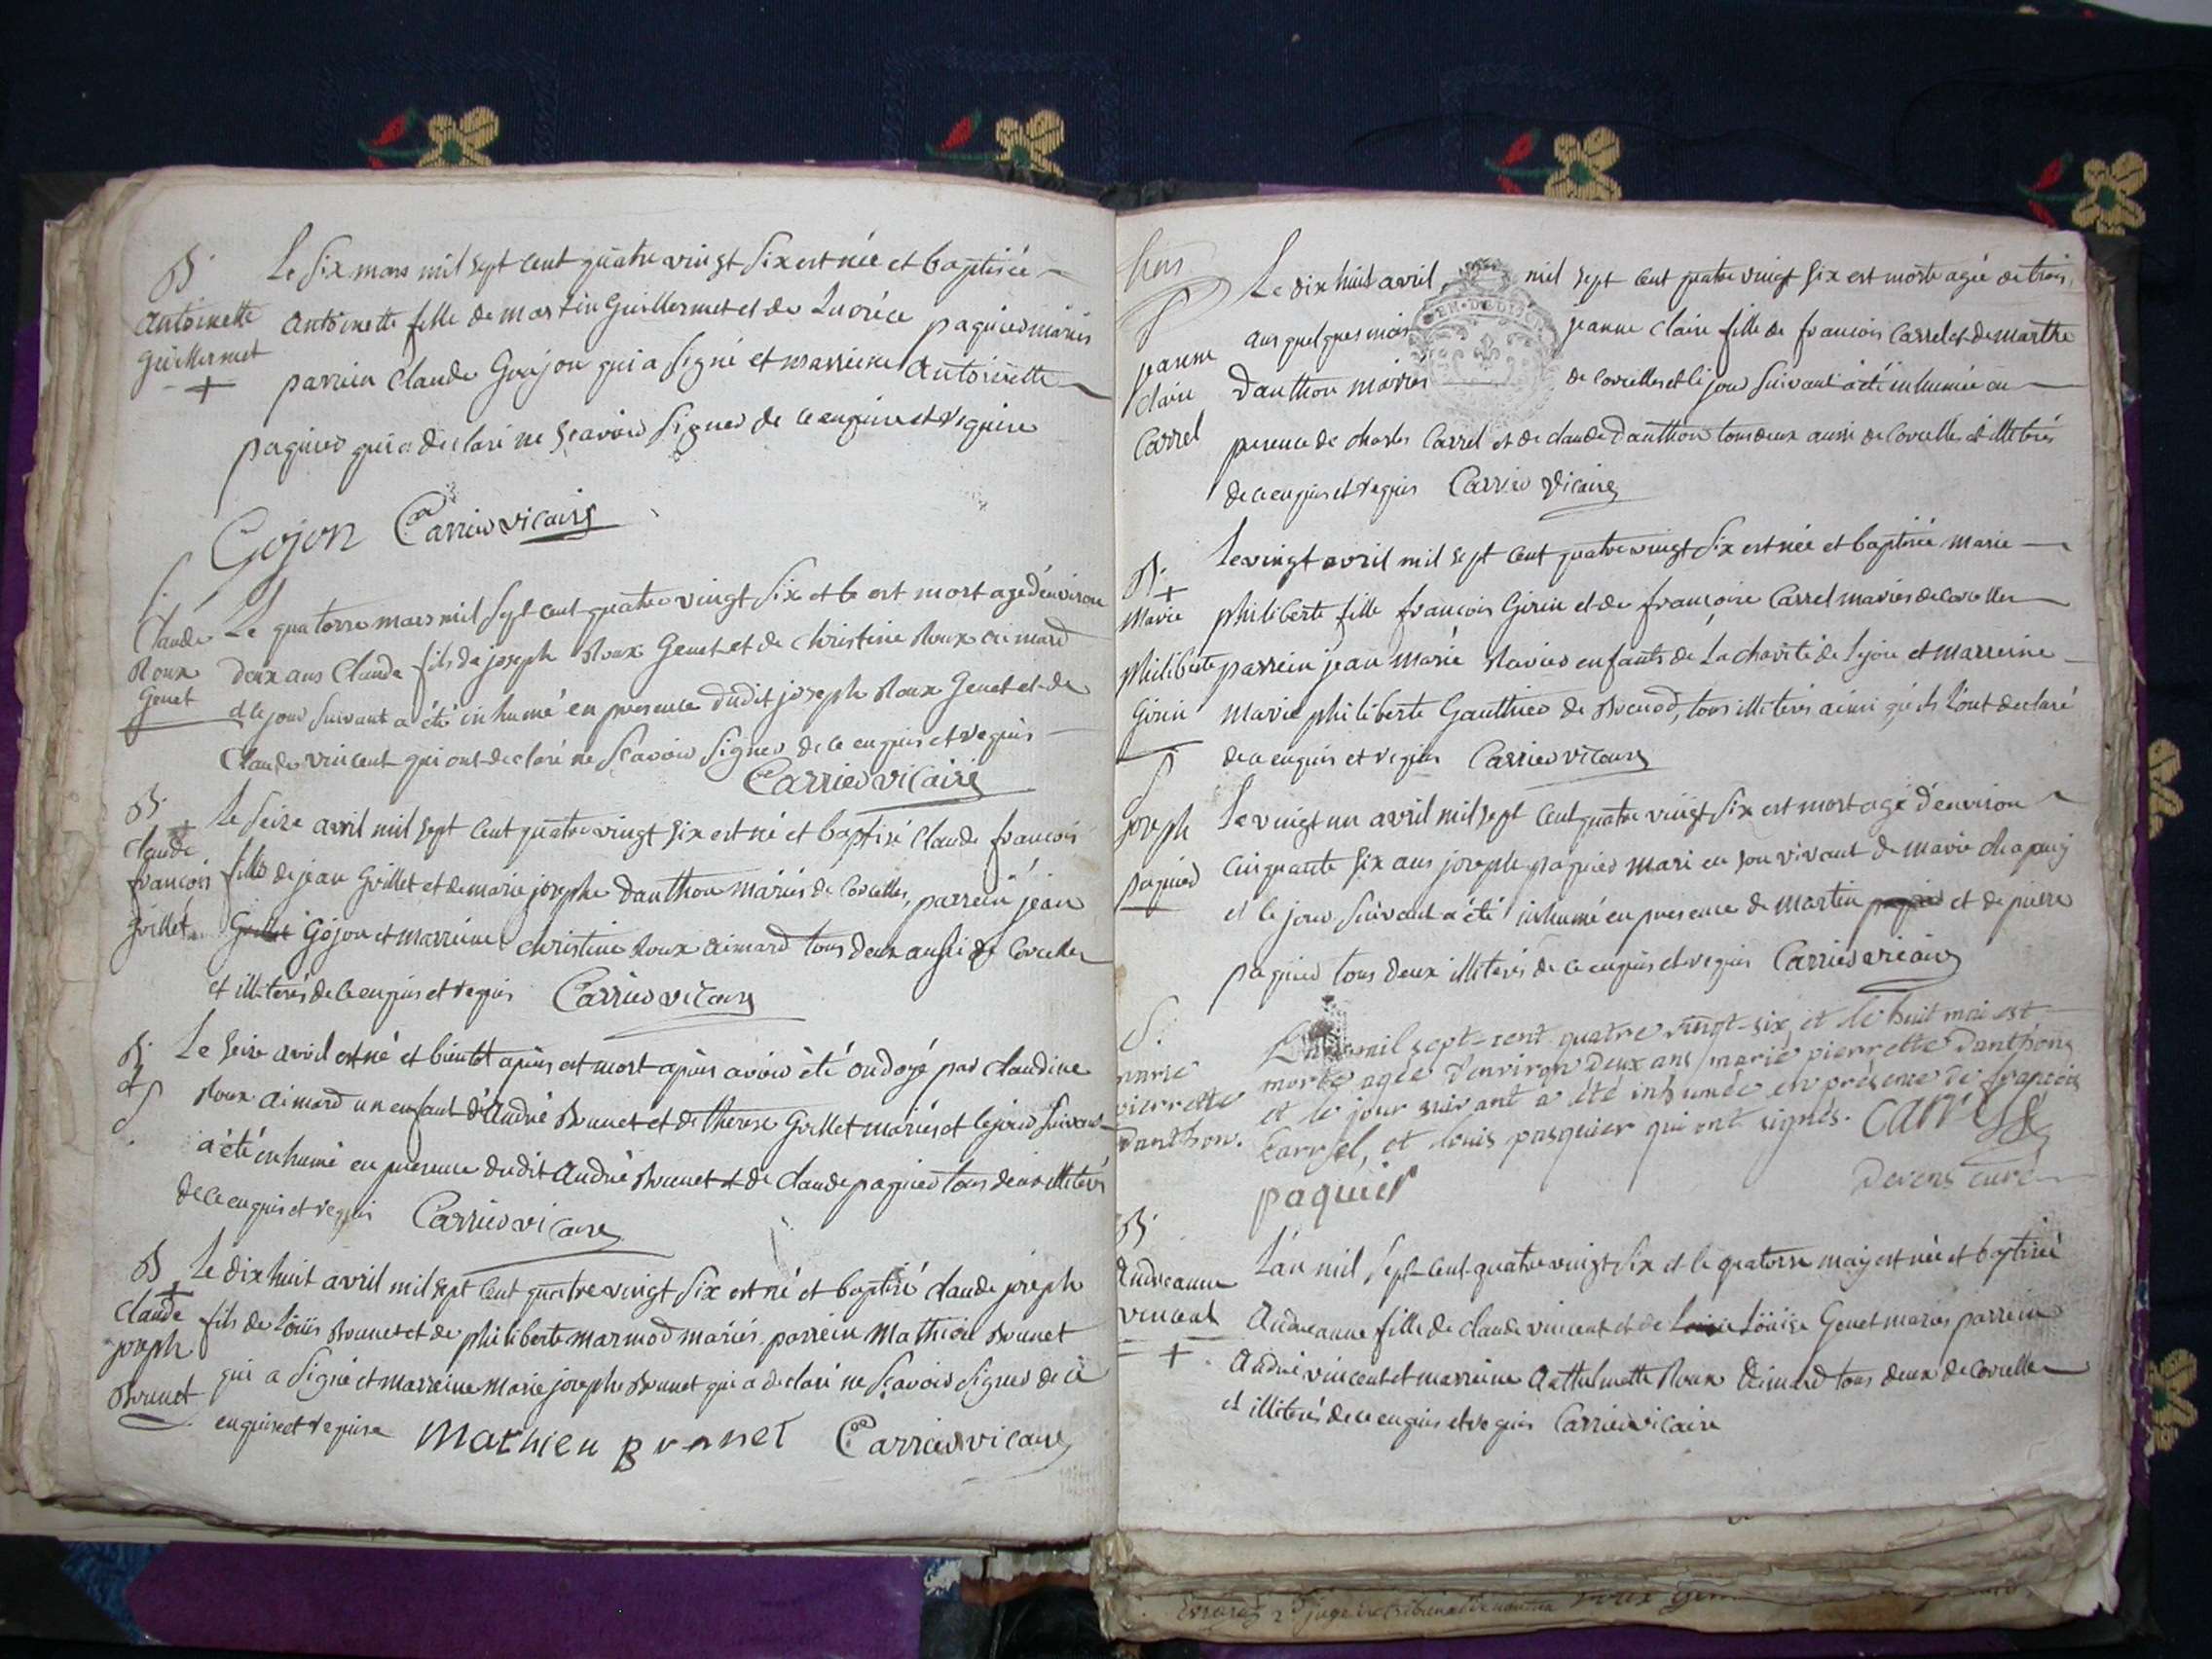 B.
Antoinette
Guillermet
+
Le six mars mil sept cent quatre vingt six est née et baptisée
Antoinette fille de martin Guillermet et de Lucrèce paquier mariés
parrein Claude Goujon qui a signé et marreine Antoinette
paquier qui a declaré ne scavoir signer de ce enquise et requise
Gojon Carrier vicaire
S.
Claude
Roux
Genet
Le quatorze mars mil sept cent quatre vingt six et le est mort agé d'environ
deux ans Claude fils de joseph Roux Genet et de christine Roux aimard
et le jour suivant a été inhumé en presence dudit joseph Roux Genet et de
Claude vincent qui ont declaré ne scavoir signer de ce enquis et requis
Carrier vicaire
B. +
Claude
francois
Grillet
Le seize avril mil sept cent quatre vingt six est né et baptisé Claude francois
fils de jean Grillet et de marie josephe Danthon mariés de Corcelles, parrein jean
Gojon et marreine christine Roux aimard tous deux aussi de Corcelles
et illiterés de ce enquis et requis Carrier vicaire
B.
et S
Le seize avril est né et bientot après est mort après avoir été ondoyé par claudine
Roux aimard un enfant d'André Brunet et de therese Grillet mariés et le jour suivant
a été inhumé en presence dudit André Brunet et de Claude paquier tous deux illiterés
de ce enquis et requis Carrier vicaire
B. +
Claude
joseph
Brunet
Le dix huit avril mil sept cent quatre vingt six est né et baptisé claude joseph
fils de Loüis Brunet et de philiberte marmod mariés parrein Mathieu Brunet
qui a signé et marreine Marie josephe Brunet qui a declaré ne scavoir signer de ce
enquise et requise Mathieu Brunet Carrier vicaire
S
jeanne
claire
Carrel
Le dix huit avril mil sept cent quatre vingt six est morte agée de trois
ans quelques mois jeanne claire fille de francois Carrel et de marthe
Danthon mariés de corcelles et le jour suivant a été inhumée en
presence de charles Carrel et de claude Danthon tous deux aussi de Corcelles et illiterés
de ce enquis et requis Carrier vicaire
B. +
Marie
philiberte
Girin
Le vingt avril mil sept cent quatre vingt six est née et baptisée marie
philiberte fille francois Girin et de francoise Carrel mariés de corcelles
parrein jean marie Ravier enfants de la charité de Lyon et marreine
Marie philiberte Gauthier de Brenod, tous illiterés ainsi qu'ils l'ont declaré
de ce enquis et requis Carrier vicaire
S
joseph
paquier
Le vingt un avril mil sept cent quatre vingt six est mort agé d'environ
cinquante six ans joseph paquier mari en son vivant de marie chapuy
et le jour suivant a été inhumé en presence de martin et de pierre
paquier tous deux illiterés de ce enquis et requis Carrier vicaire
S.
marie
pierrette
Danthon.
L'an mil sept-cent quatre vingt-six et le huit mai est
morte agée d'environ deux ans marie pierrette Danthon
et le jour suivant a été inhumée en présence de françois
Carrel, et louis pasquier qui ont signés. Carrel
paquier Devens curé
B.
Andreanne
vincent
+
L'an mil sept cent quatre vingt six et le quatorze may est née et baptisée
Andreanne fille de claude vincent et de Loüise Genet mariés parrein
André vincent et marreine Anthelmette Roux Aimard tous deux de Corcelles
et illiterés de ce enquis et requis Carrier vicaire